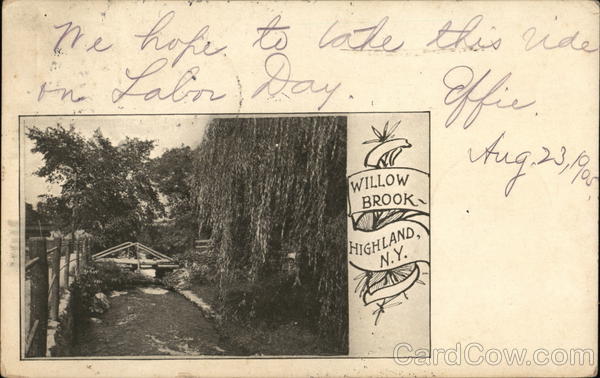 We hope to take this ride
on Labor Day. Effie.
Aug. 23,
WILLOW
BROOK-
HIGHLAND,
N.Y.
CardCow.com